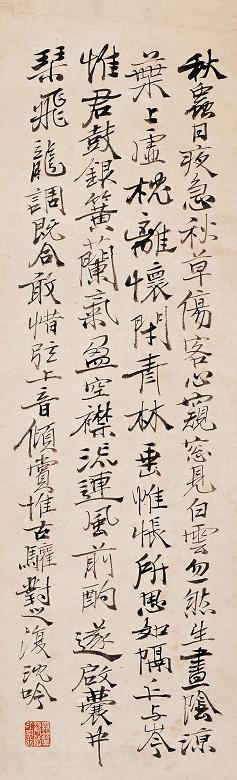 秋蟲日夜急秋草傷客心窺窓見白雲忽然生晝陰涼
葉上虛枕離懷閉青林垂帷悵所思如隔丘与岑
惟君鼓銀簧蘭氣盈空襟流連風前酌遂啟囊中
琹飛龍調既合敢惜弦上音傾賞惟古驩對之復沈吟